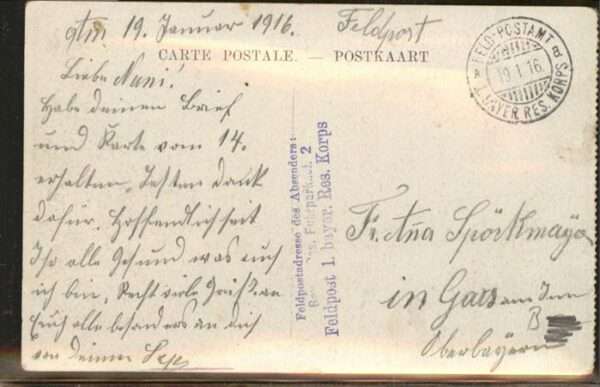 Am 19. Januar 1916. Feldpost
CARTE POSTALE. — POSTKAART
FELD-POSTAMT
19.1.16.
1. BAYER. RES. KORPS
Liebe Nani!
Habe deinen Brief
und Karte vom 14.
erhalten, besten dank
dafür. Hoffentlich seit
Ihr alle Gesund was auch
ich bin, Recht viele Grüße an
Euch alle besonders an dich
von deinem Sepp
Feldpostadresse des Absenders:
Res. Fuhrpark 2
Feldpost 1. bayer. Res. Korps
Fr. Anna Spörkmayr
in Gars am Inn
B
Oberbayern